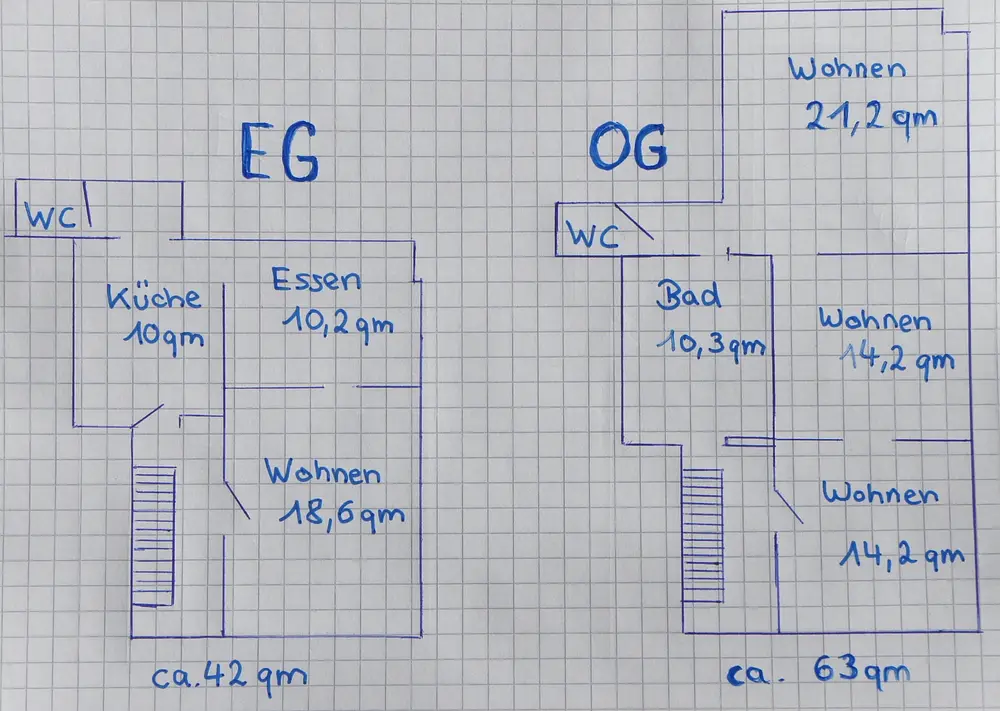 EG
WC
Küche
10qm
Essen
10,2 qm
Wohnen
18,6 qm
ca. 42 qm
OG
Wohnen
21,2 qm
WC
Bad
10,3 qm
Wohnen
14,2 qm
Wohnen
14,2 qm
ca. 63 qm